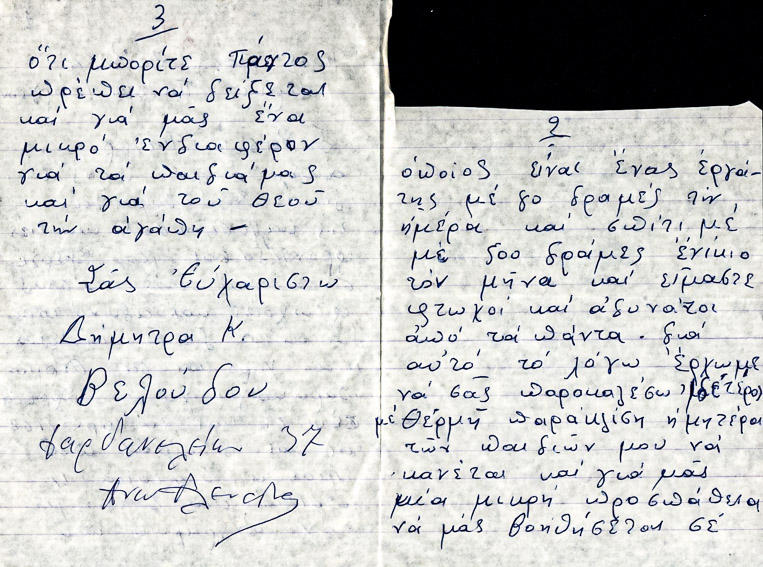 3
ὅτι μπορίτε Πάντος
πρέπει νά δείξεται
και γιά μᾶς ἕνα
μικρό ἐνδιαφέρον
γιά τά παιδιά μας
και γιά τοῦ Θεοῦ
τήν ἀγάπη –
Σᾶς Εὐχαριστῶ
Δήμητρα Κ.
Βελούδου
Δαρδανελείων 37
2
ὁποίος εἶναι ἕνας ἐργά-
της μέ 90 δραμές τήν
ἡμέρα και σπίτι μέ
μέ 500 δράμες ἐνίκιο
τόν μῆνα και εἴμαστε
φτωχοί και ἀδυνατοι
ἀπό τά πάντα. διά
αὐτό τό λόγω ἔρχωμε
νά σᾶς παροκαλέσω
μέ Θέρμή παράκλιση ἡ μητέρα
τῶν παιδιῶν μου νά
κανέται και γιά μᾶς
μιἑα μικρή προσπάθεια
νά μᾶς βοηθήσέται σέ